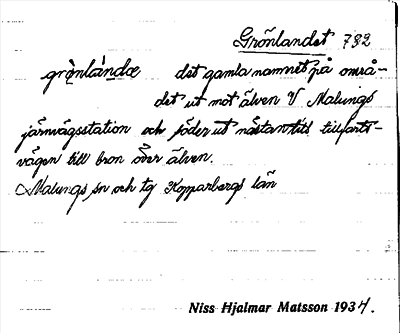 Grönlandet 732
grònlándœ det gamla namnet på områ-
det ut mot älven V Malungs
järnvägsstation och söder ut nästan till tillfarts-
vägen till bron över älven.
Malungs sn och tg Kopparbergs län
Niss Hjalmar Matsson 1934.